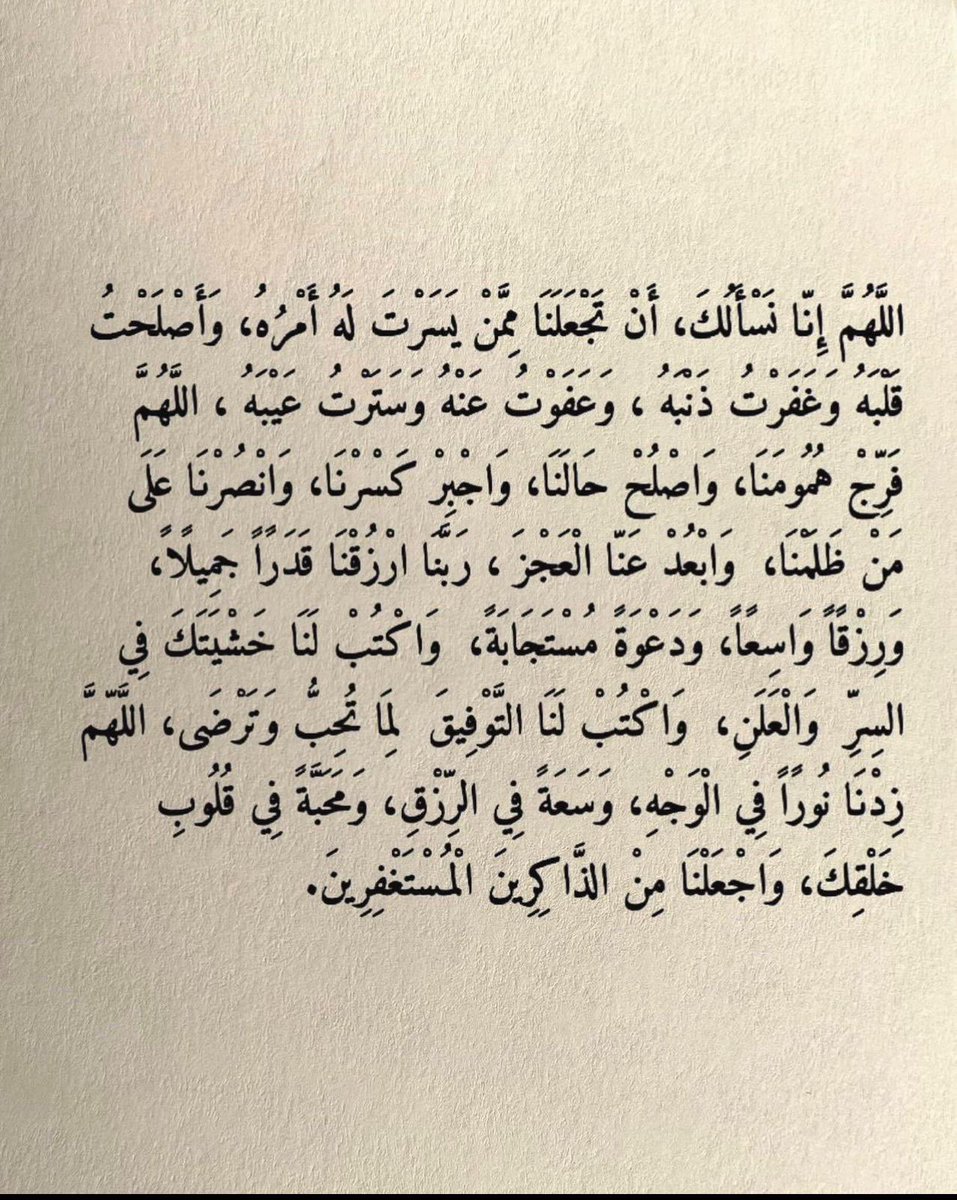 اللَّهُمَّ إِنّا نَسْأَلُكَ، أَنْ تَجْعَلَنَا مِمَّنْ يَسَرْتَ لَهُ أَمْرُه، وَأَصْلَحْتُ
قَلْبَهُ وَغَفَرْتُ ذَنْبَهُ ، وَعَفَوْتُ عَنْهُ وَسَتَرْتُ عَيْبَهُ ، اللَّهُمَّ
فَرِّجْ هُمُومَنَا، وَاصْلُحْ حَالَنَا، وَاجْبِرْ كَسْرْنَا، وَانْصُرْنَا عَلَى
مَنْ ظَلَمْنَا، وَابْعُدْ عَنّا الْعَجْزَ ، رَبَّنَا ارْزُقْنَا قَدَرًاً جَمِيلًاً،
وَرِزْقًاً وَاسِعًاً، وَدَعْوَةً مُسْتَجَابَةً، وَاكْتُبْ لَنَا خَشْيَتَكَ فِي
السِرِّ وَالْعَلَنِ، وَاكْتُبْ لَنَا التَّوْفِيقَ لِمَا تُحِبُّ وَتَرْضَى، اللَّهّمَّ
زِدْنَا نُورًاً فِي الْوَجْهِ، وَسَعَةً فِي الرِّزْقِ، وَمَحَبَّةً فِي قُلُوبِ
خَلْقِكَ، وَاجْعَلْنَا مِنْ الذَّاكِرِينَ الْمُسْتَغْفِرِينَ.